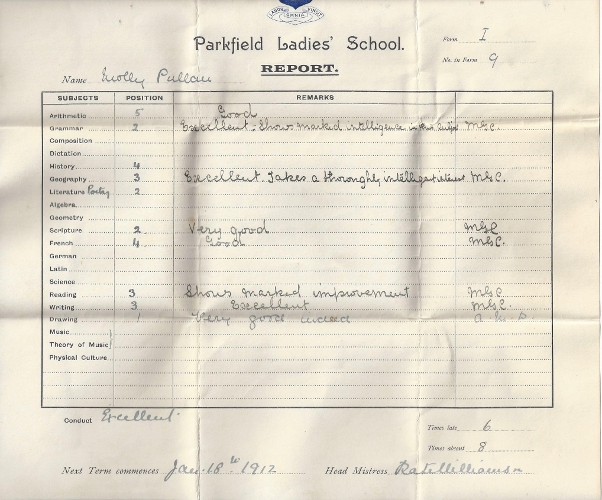 LABOR OMNIA VINCIT
Parkfield Ladies' School.
REPORT.
Form I
No. in Form 9
Name Molly Pullan
SUBJECTS POSITION REMARKS
Arithmetic 5 Good
Grammar 2 Excellent - Shows marked intelligence in this subject MGC.
Composition
Dictation
History 4
Geography 3 Excellent. Takes a thoroughly intelligent interest MGC.
Literature Poetry 2
Algebra
Geometry
Scripture 2 Very good MGC
French 4 Good MGC.
German
Latin
Science
Reading 3 Shows marked improvement MGC
Writing 3 Excellent MGC.
Drawing 1 Very good indeed
Music
Theory of Music
Physical Culture
Conduct Excellent
Times late 6
Times absent 8
Next Term commences Jan. 18th 1912 Head Mistress Kate Williamson